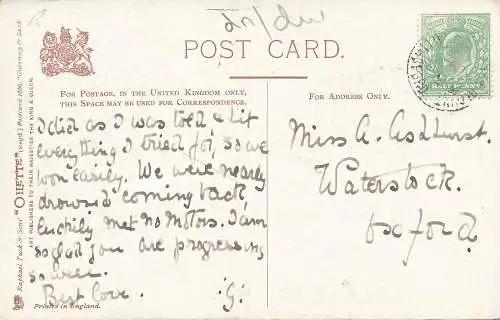 dn/dw
POST CARD.
FOR POSTAGE, IN THE UNITED KINGDOM ONLY,
THIS SPACE MAY BE USED FOR CORRESPONDENCE.
FOR ADDRESS ONLY.
HALF PENNY
I did as I was told, & hit
everything I tried for, so we
won easily. We were nearly
drowned coming back,
luckily met no motors. I am
so glad you are progressing
so well.
Best love. "G"
Miss A. Ashhurst.
Waterstock.
Oxford
Raphael Tuck & Sons' "OILETTE" [Regd.] Postcard "Guernsey & Sark"
ART PUBLISHERS TO THEIR MAJESTIES THE KING & QUEEN.
Printed in England.